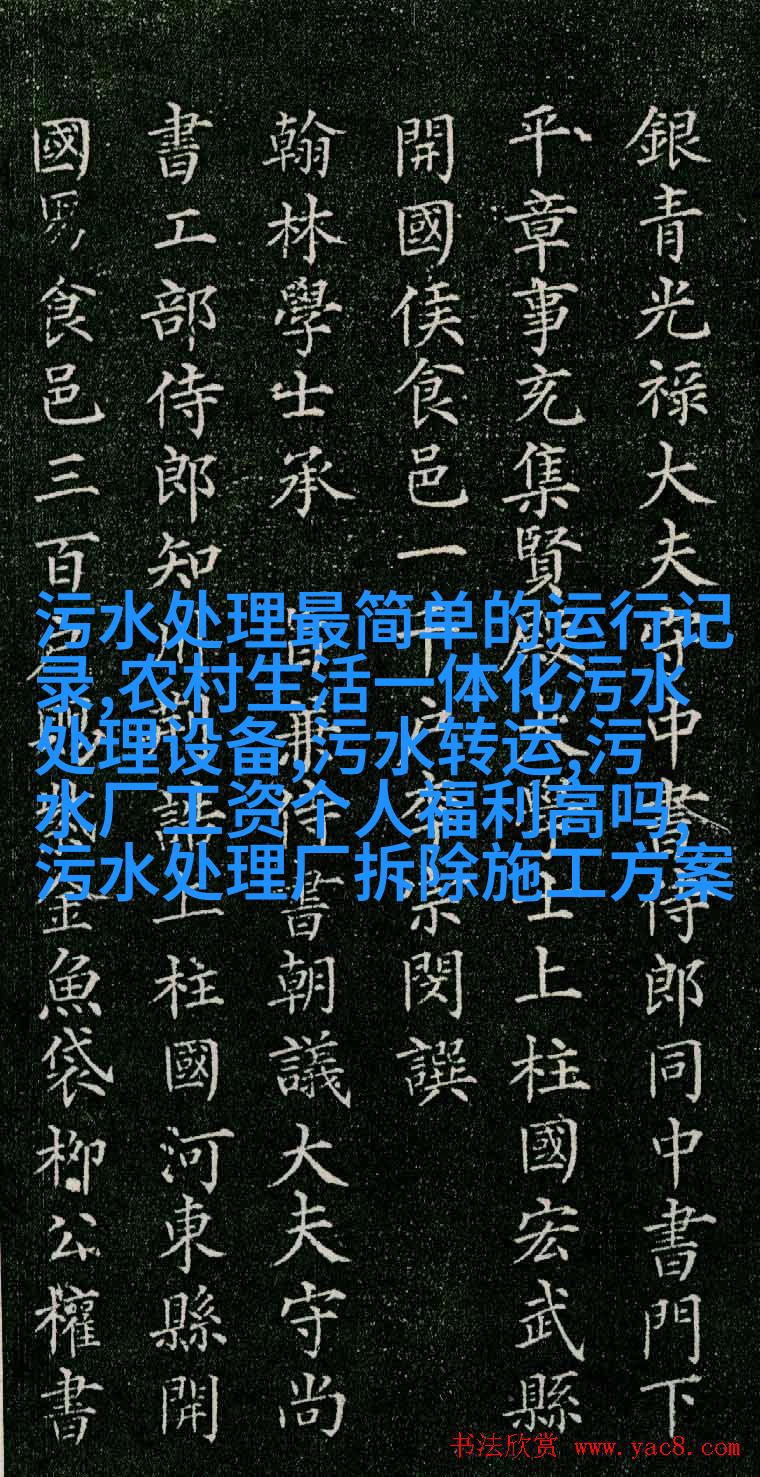 銀青光禄大夫守中書侍郎同中書門下
平章事充集賢殿大學士上柱國宏武縣
開國侯食邑一千户李宗閔撰
翰林學士承旨兼侍書朝議大夫守尚
書工部侍郎知制誥上柱國河東縣開
國男食邑三百户賜紫金魚袋柳公權書
污水处理最简单的运行记
录,农村生活一体化污水
处理设备,污水转运,污
水厂工资个人福利高吗,
污水处理厂拆除施工方案
书法欣赏 www.yac8.com